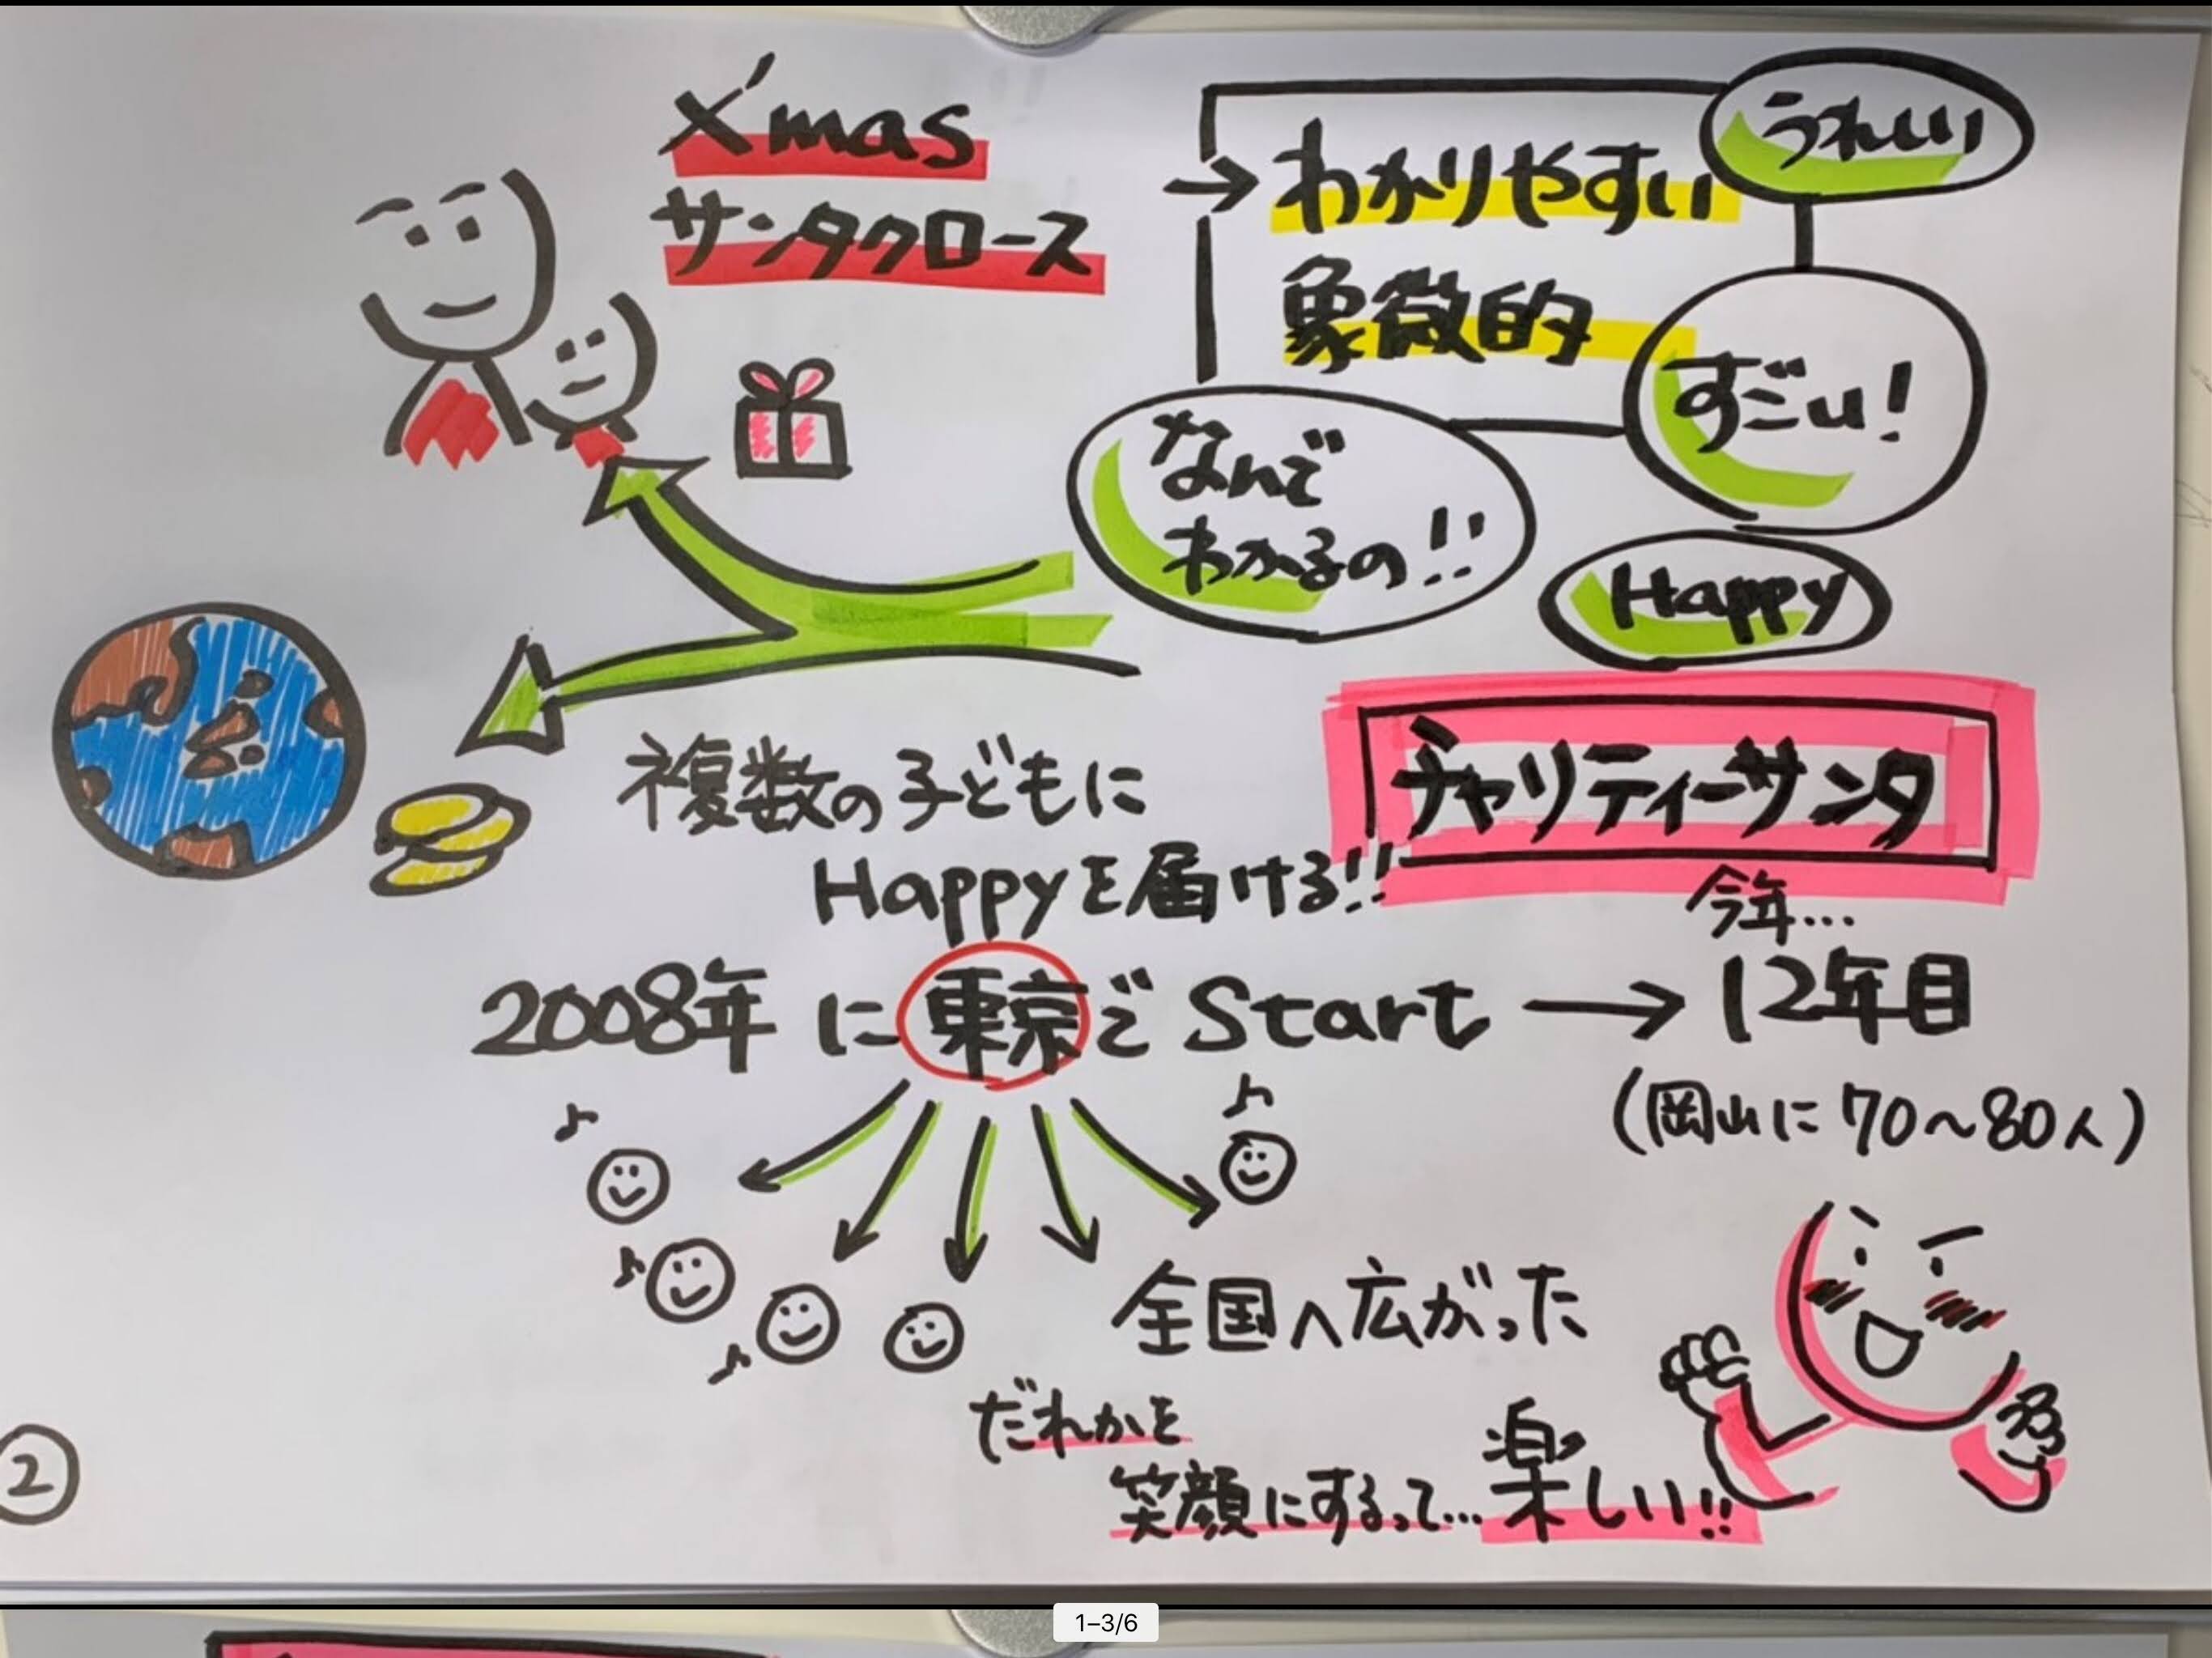 X'mas
サンタクロース
→わかりやすい
象徴的
うれしい
すごい!
なんで
わかるの!!
Happy
チャリティーサンタ
複数の子どもに
Happyを届ける!!
今年…
2008年に東京でStart→12年目
(岡山に70〜80人)
全国へ広がった
だれかを
笑顔にするって…楽しい!!
2
1–3/6